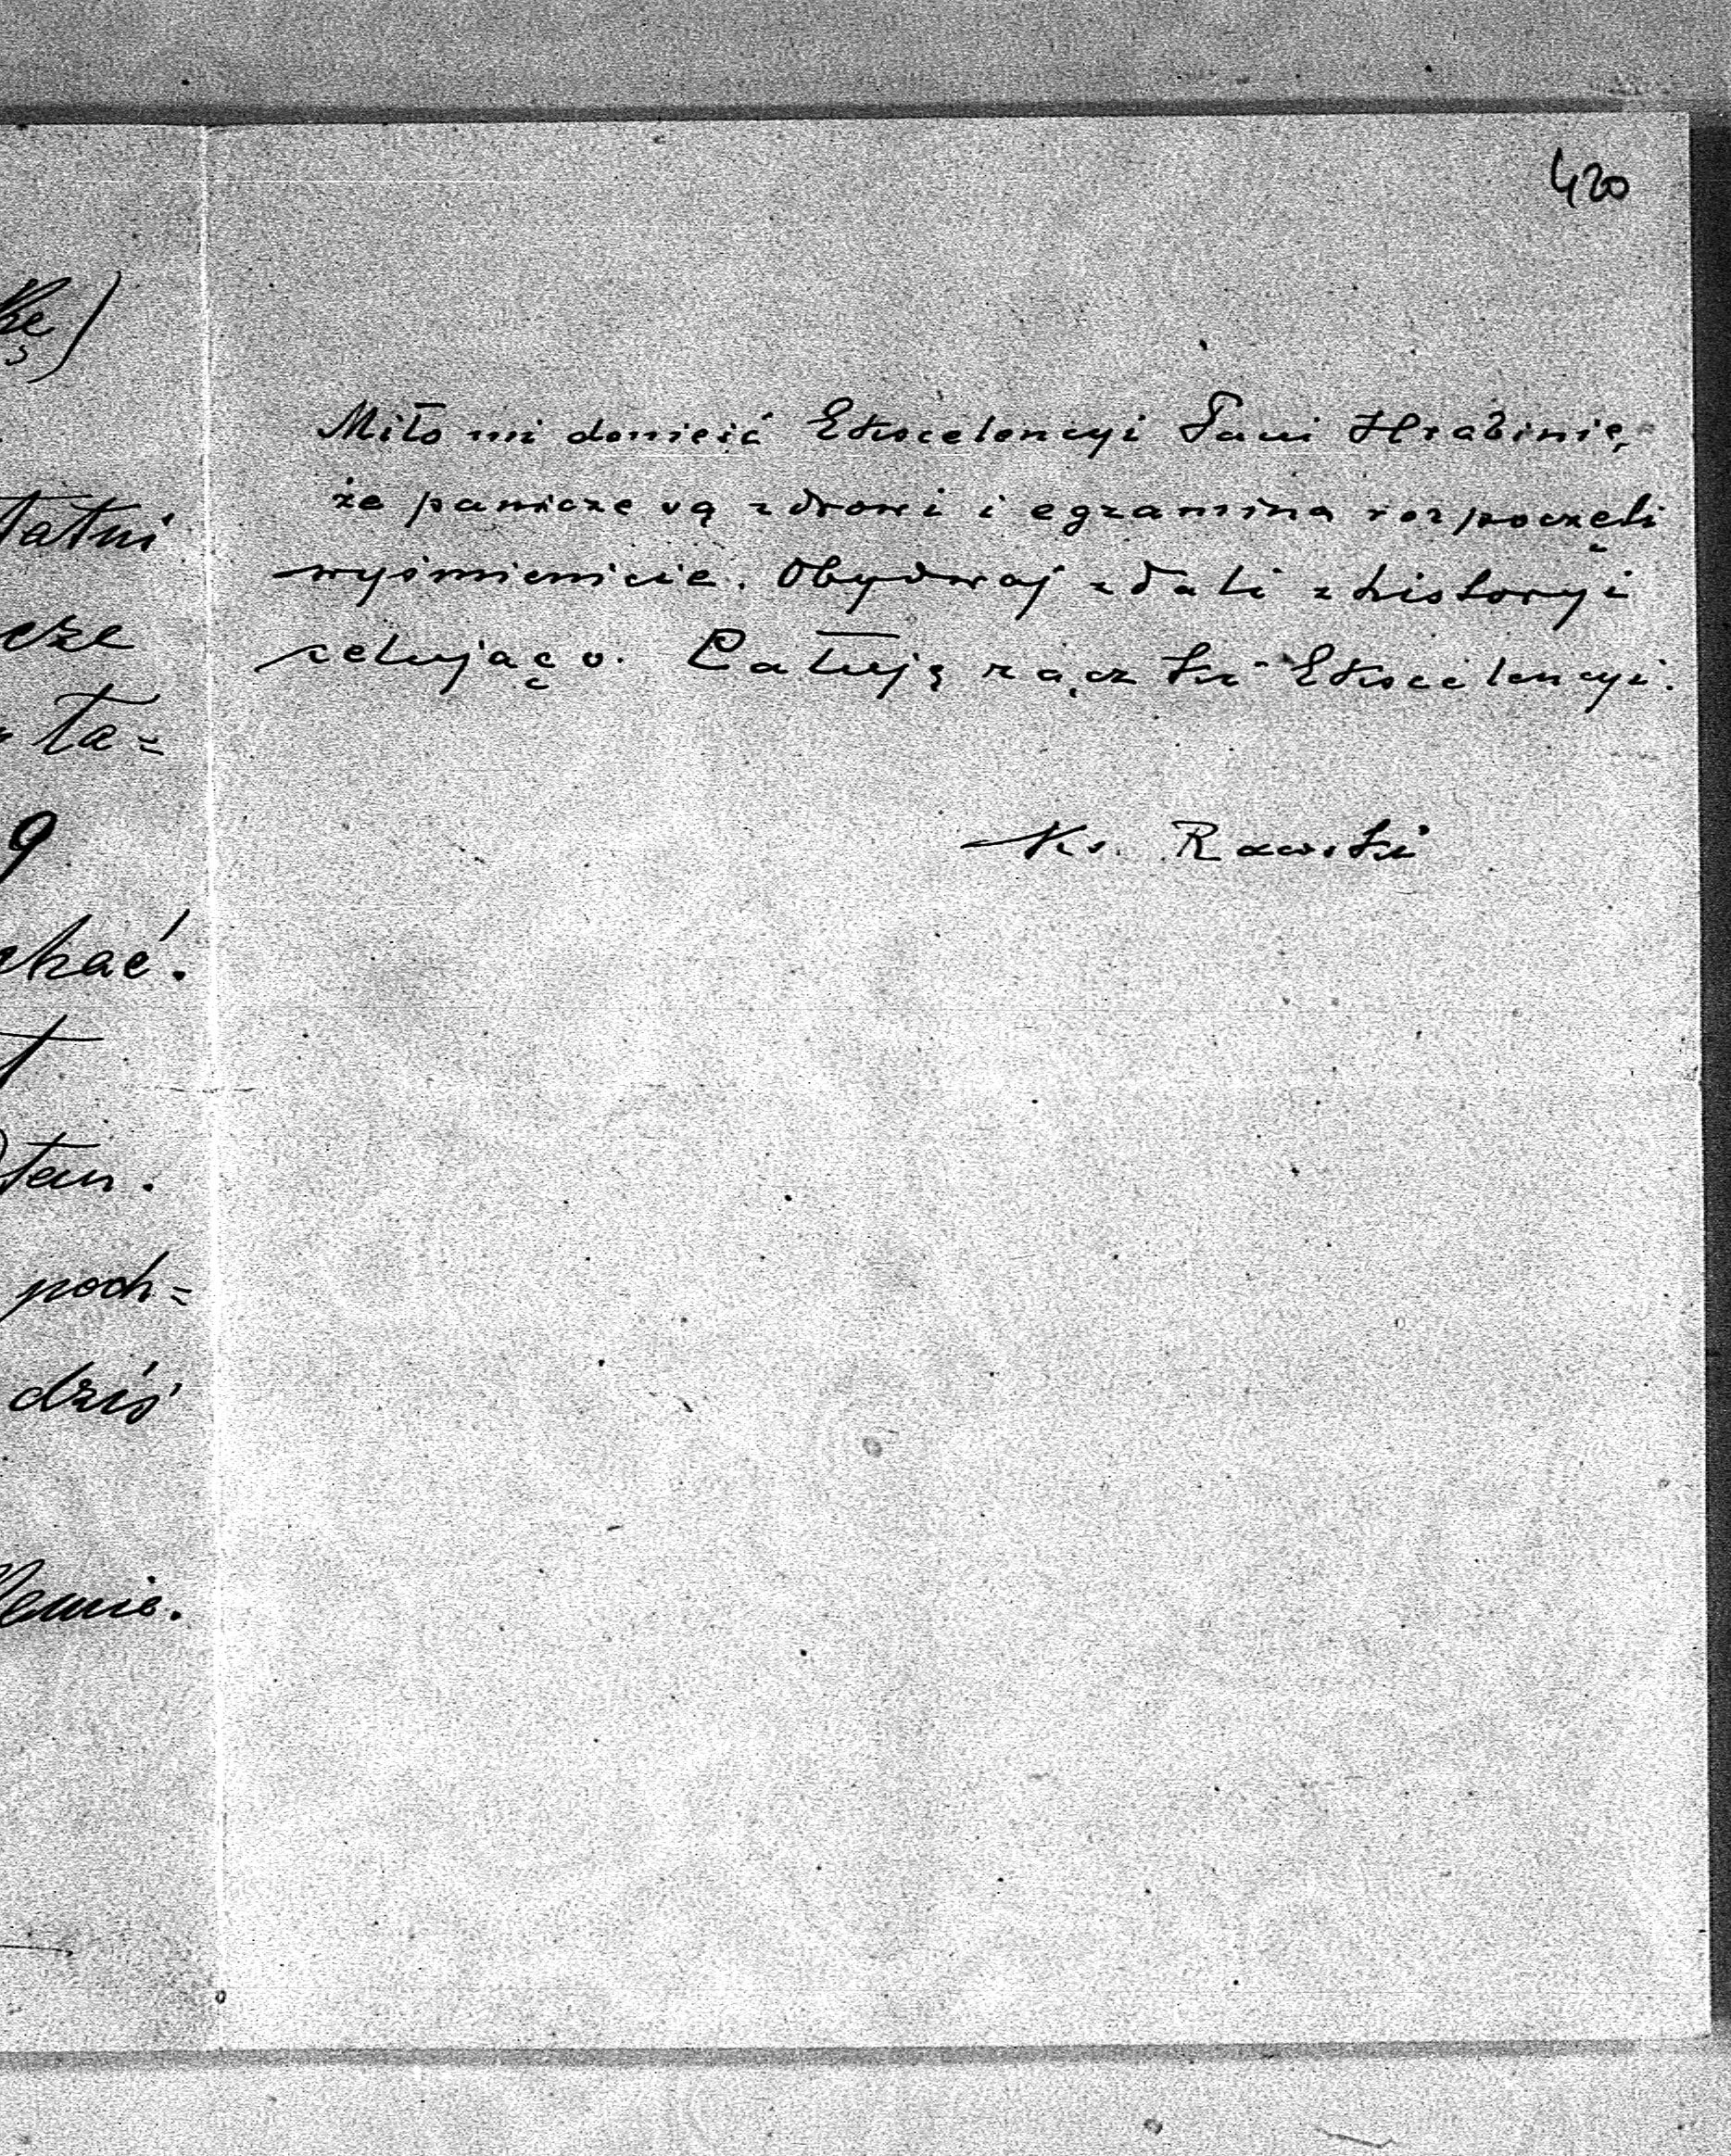 420
Miło mi donieść Ekscelencyi Pani Hrabinie,
że panicze są zdrowi i egzamina rozpoczęli
wyśmienicie. Obydwaj zdali z historyi
celująco. Całuję rączki Ekscelencyi.
Ks. Rawski
kę)
tatni
cze
ta=
9
chać.
t
tem.
poch=
dziś